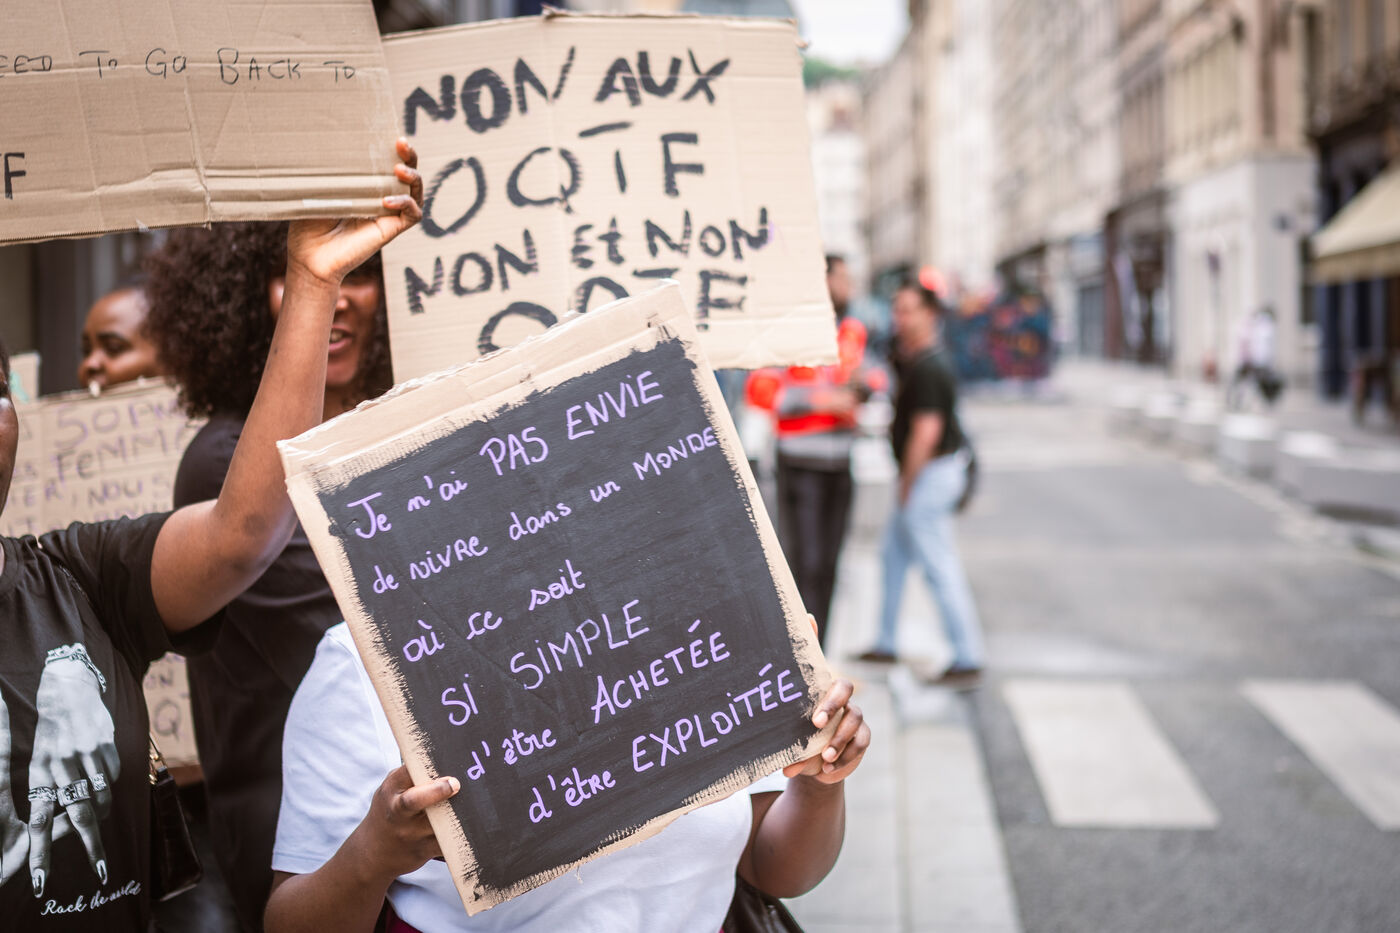 EED TO GO BACK TO
F
NON AUX
OQTF
NON Et NON
OQTF
Je m'ai PAS ENVIE
de vivRe dans un MONDE
où ce soit
Si SiMPLE
d'être ACHETÉE
d'êtRe EXPLOITÉE
SOMM
FEMM
NOUS
Rock the world